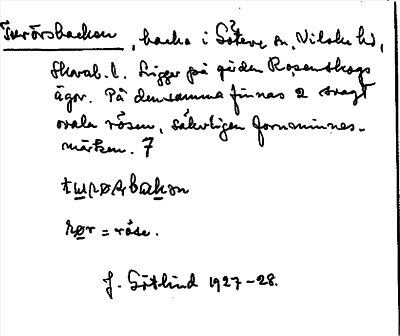 Turörsbacken, backe i Sätene sn, Vilske hd,
Skarab. l. Ligger på gården Rosenskogs
ägor. På densamma finnas 2 svagt
ovala rösen, säkerligen fornminnes-
märken. 7
rør = röse.
J. Götlind 1927-28.